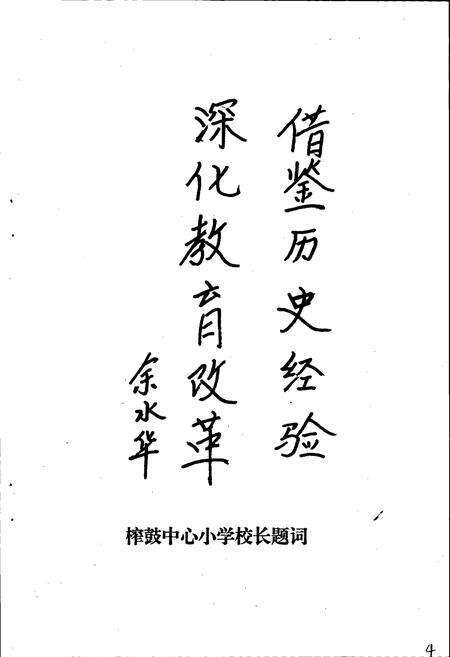 借鉴历史经验
深化教育改革
余水华
榨鼓中心小学校长题词
4